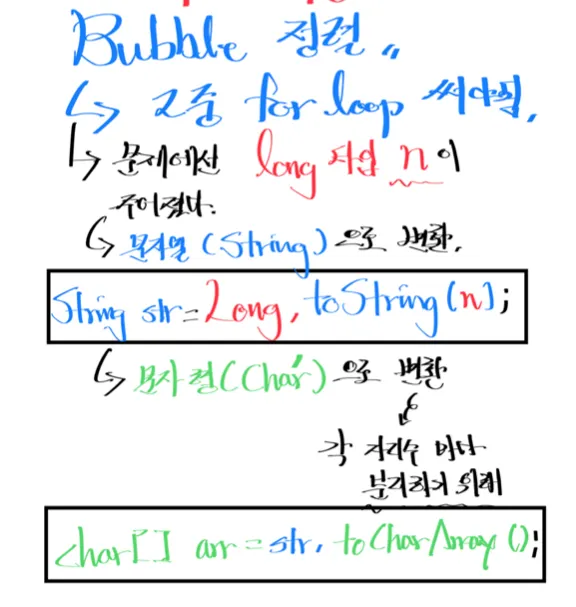 Bubble 정렬 "
↳ 2중 for loop 써야됨.
↳ 문제에선 long 타입 n이
주어졌다.
↳ 문자열 (String) 으로 변환.
String str = Long.toString(n);
↳ 문자형 (Char) 으로 변환
각 자리수 마다
분리하기 위해
char[] arr = str.toCharArray();